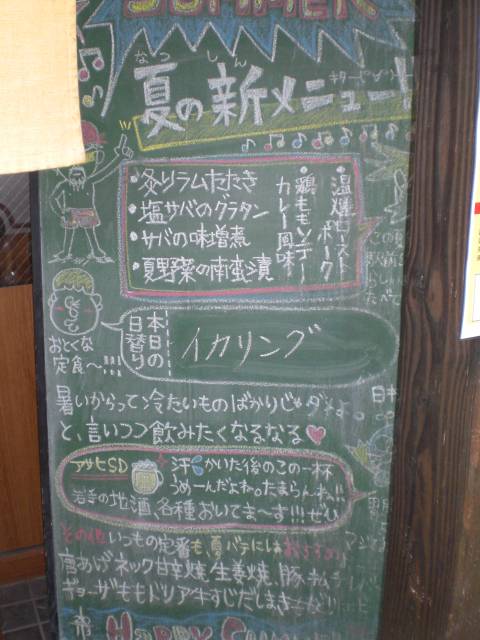 SUMMER
なつ しん
夏の新メニュー!
・炙りラムたたき
・塩サバのグラタン
・サバの味噌煮
・夏野菜の南蛮漬
・鶏ももソテー
カレー風味
・温燻ロースト
ポーク
おとくな
定食〜!!!
本日の
日替り
イカリング
暑いからって冷たいものばかりじゃダメよ。
と、言いつつ飲みたくなるなる♥
アサヒSD
汗かいた後のこの一杯
うめーんだよね。たまらんね!!
岩手の地酒、各種おいてま〜す!!!ぜひ
その他いつもの定番も夏バテにはおすすめ
唐あげ ネック甘辛焼 生姜焼、豚キムチ
ギョーザ ももドリア 牛すじ だしまき
HAPPY